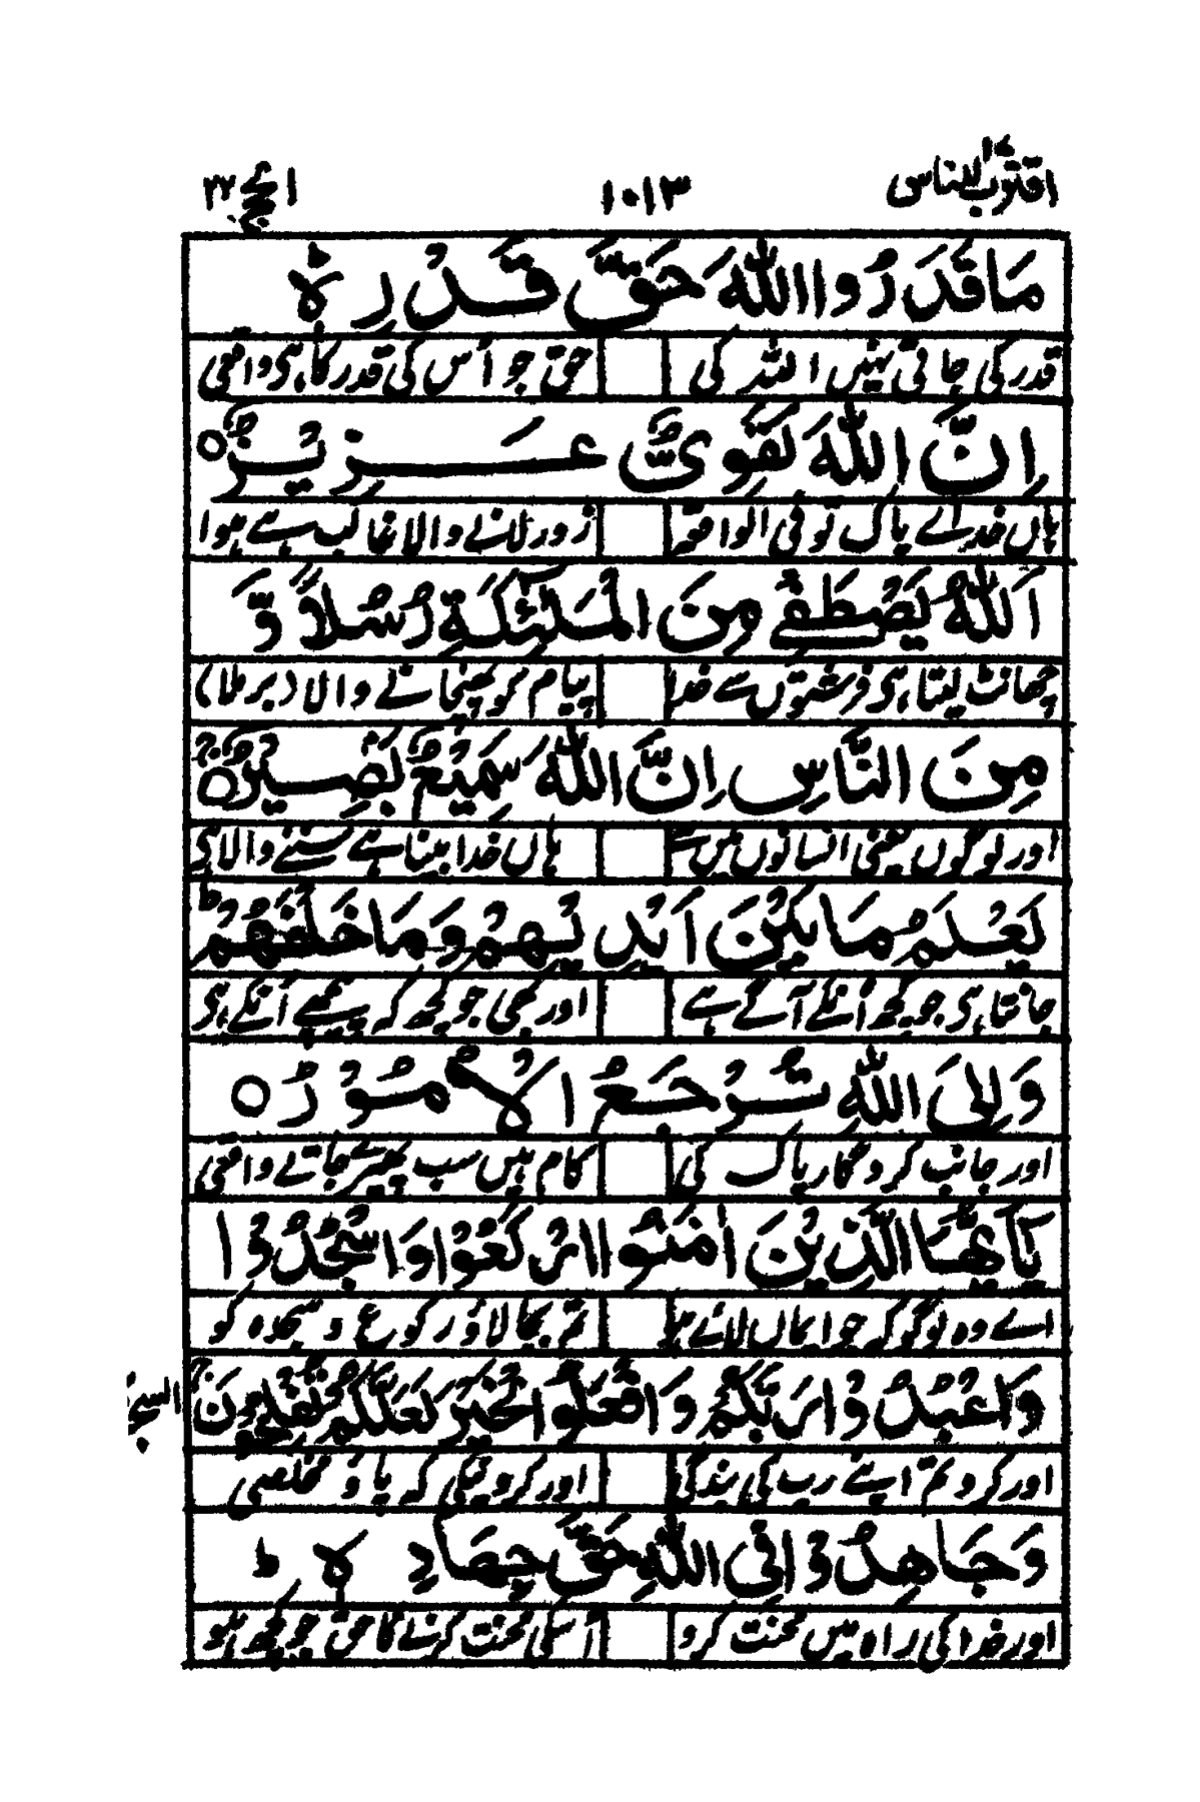 اقترب للناس ۱۷ ۱۰۱۳ الحج ۲۲
مَا قَدَرُوا اللّٰهَ حَقَّ قَدْرِهٖ ؕ
قدر کی جاتی نہیں اللہ کی حق جو اُس کی قدر کا ہی واقعی
اِنَّ اللّٰهَ لَقَوِیٌّ عَزِیْزٌ ۝
ہاں خدائے پاک تو فی الواقع زور والا غالب ہے ہوا
اَللّٰهُ یَصْطَفِیْ مِنَ الْمَلٰٓئِكَةِ رُسُلًا وَّ
چھانٹ لیتا ہی فرشتوں سے خدا پیام کو پہنچانے والا (برملا)
مِنَ النَّاسِ ؕ اِنَّ اللّٰهَ سَمِیْعٌۢ بَصِیْرٌ ۝ۚ
اور لوگوں یعنی انسانوں میں سے ہاں خدا بینا ہے سننے والا ہی
یَعْلَمُ مَا بَیْنَ اَیْدِیْهِمْ وَمَا خَلْفَهُمْ ؕ
جانتا ہی جو کچھ اُنکے آگے ہے اور بھی جو کچھ کہ پیچھے اُنکے ہی
وَاِلَی اللّٰهِ تُرْجَعُ الْاُمُوْرُ ۝
اور جانب کردگار پاک کی کام ہیں سب پھیرے جاتے واقعی
یٰۤاَیُّهَا الَّذِیْنَ اٰمَنُوا ارْكَعُوْا وَاسْجُدُوْا
اے وہ لوگو کہ جو ایماں لائے ہو تم بجا لاؤ رکوع و سجدہ کو
وَاعْبُدُوْا رَبَّكُمْ وَافْعَلُوا الْخَیْرَ لَعَلَّكُمْ تُفْلِحُوْنَ ۚ
السجدۃ
اور کرو تم اپنے رب کی بندگی اور کرو نیکی کہ پاؤ مخلصی
وَجَاهِدُوْا فِی اللّٰهِ حَقَّ جِهَادِهٖ ؕ
اور خدا کی راہ میں محنت کرو اُسکی محنت کرنے کا حق جو کچھ ہو